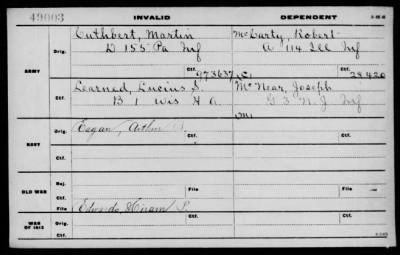 49003 INVALID DEPENDENT
ARMY
Orig. Cuthbert, Martin McCarty, Robert
D 155 Pa Inf A 114 Ill Inf
Ctf. 973637 Ctf. 28420
Learned, Lucius S. McNear, Joseph
B 1 Wis H A. G 3 N. J Inf
NAVY
Orig. Eagan, Arthur
Ctf. Ctf.
OLD WAR
Rej.
Ctf. File File
WAR OF 1812
Orig. Edwards, Hiram P.
Ctf. Ctf.